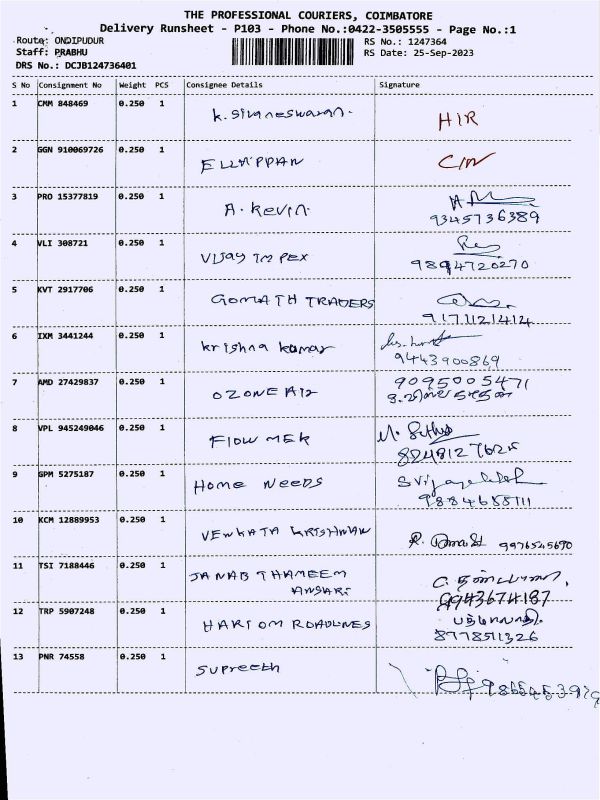 THE PROFESSIONAL COURIERS, COIMBATORE
Delivery Runsheet - P103 - Phone No.:0422-3505555 - Page No.:1
Route: ONDIPUDUR RS No.: 1247364
Staff: PRABHU RS Date: 25-Sep-2023
DRS No.: DCJB124736401
S No Consignment No Weight PCS Consignee Details Signature
1 CMM 848469 0.250 1 K. Sivaneswaran. HIR
2 GGN 910069726 0.250 1 ELLAPPAN
3 PRO 15377819 0.250 1 A. Kevin.
9345736389
4 VLI 308721 0.250 1 Vijay Impex
9894720270
5 KVT 2917706 0.250 1 GOMATH TRADERS
9171121414
6 IXM 3441244 0.250 1 Krishna Kumar
9443900869
7 AMD 27429837 0.250 1 OZONE Air 9095005471
8 VPL 945249046 0.250 1 FLOW MEK
9 GPM 5275187 0.250 1 Home Needs
10 KCM 12889953 0.250 1 VENKATA KRISHNAN 9976545690
11 TSI 7188446 0.250 1 JANAB THAMEEM
ANSARI 9943674187
12 TRP 5907248 0.250 1 HARI OM ROADLINES
8778571326
13 PNR 74558 0.250 1 Supreeth